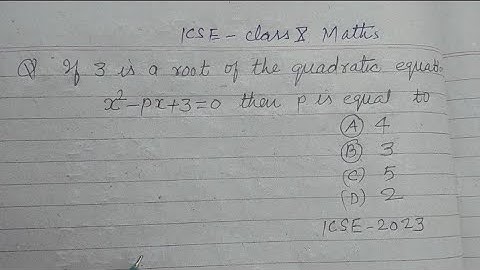 ICSE - class X Maths
Q If 3 is a root of the quadratic equat.
x²-px+3=0 then p is equal to
(A) 4
(B) 3
(C) 5
(D) 2
ICSE-2023